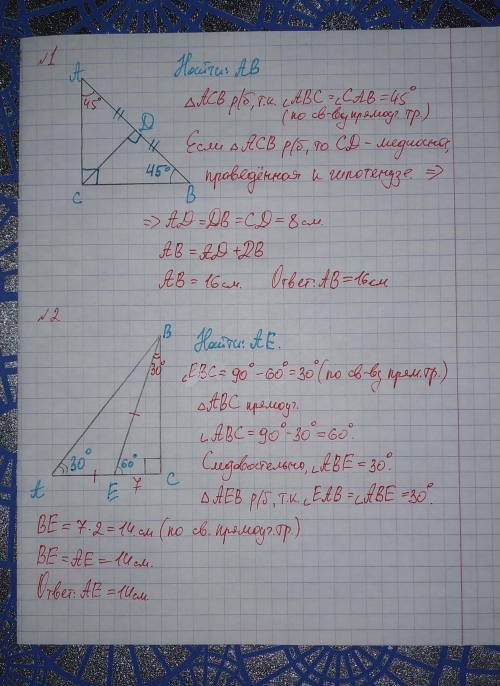 №1
Найти: AB
A
45°
D
45°
C
B
△ACB р/б, т.к. ∠ABC = ∠CAB = 45°
(по св-ву прямоуг. тр.)
Если △ACB р/б, то CD - медиана,
проведённая к гипотенузе ⇒
⇒ AD = DB = CD = 8 см.
AB = AD + DB
AB = 16 см. Ответ: AB = 16 см
№2
Найти: AE.
B
30°
30°
60°
A
E
7
C
∠EBC = 90° - 60° = 30° (по св-ву прям. тр.)
△ABC прямоуг.
∠ABC = 90° - 30° = 60°.
Следовательно, ∠ABE = 30°.
△AEB р/б, т.к. ∠EAB = ∠ABE = 30°.
BE = 7·2 = 14 см (по св. прямоуг. тр.)
BE = AE = 14 см.
Ответ: AE = 14 см